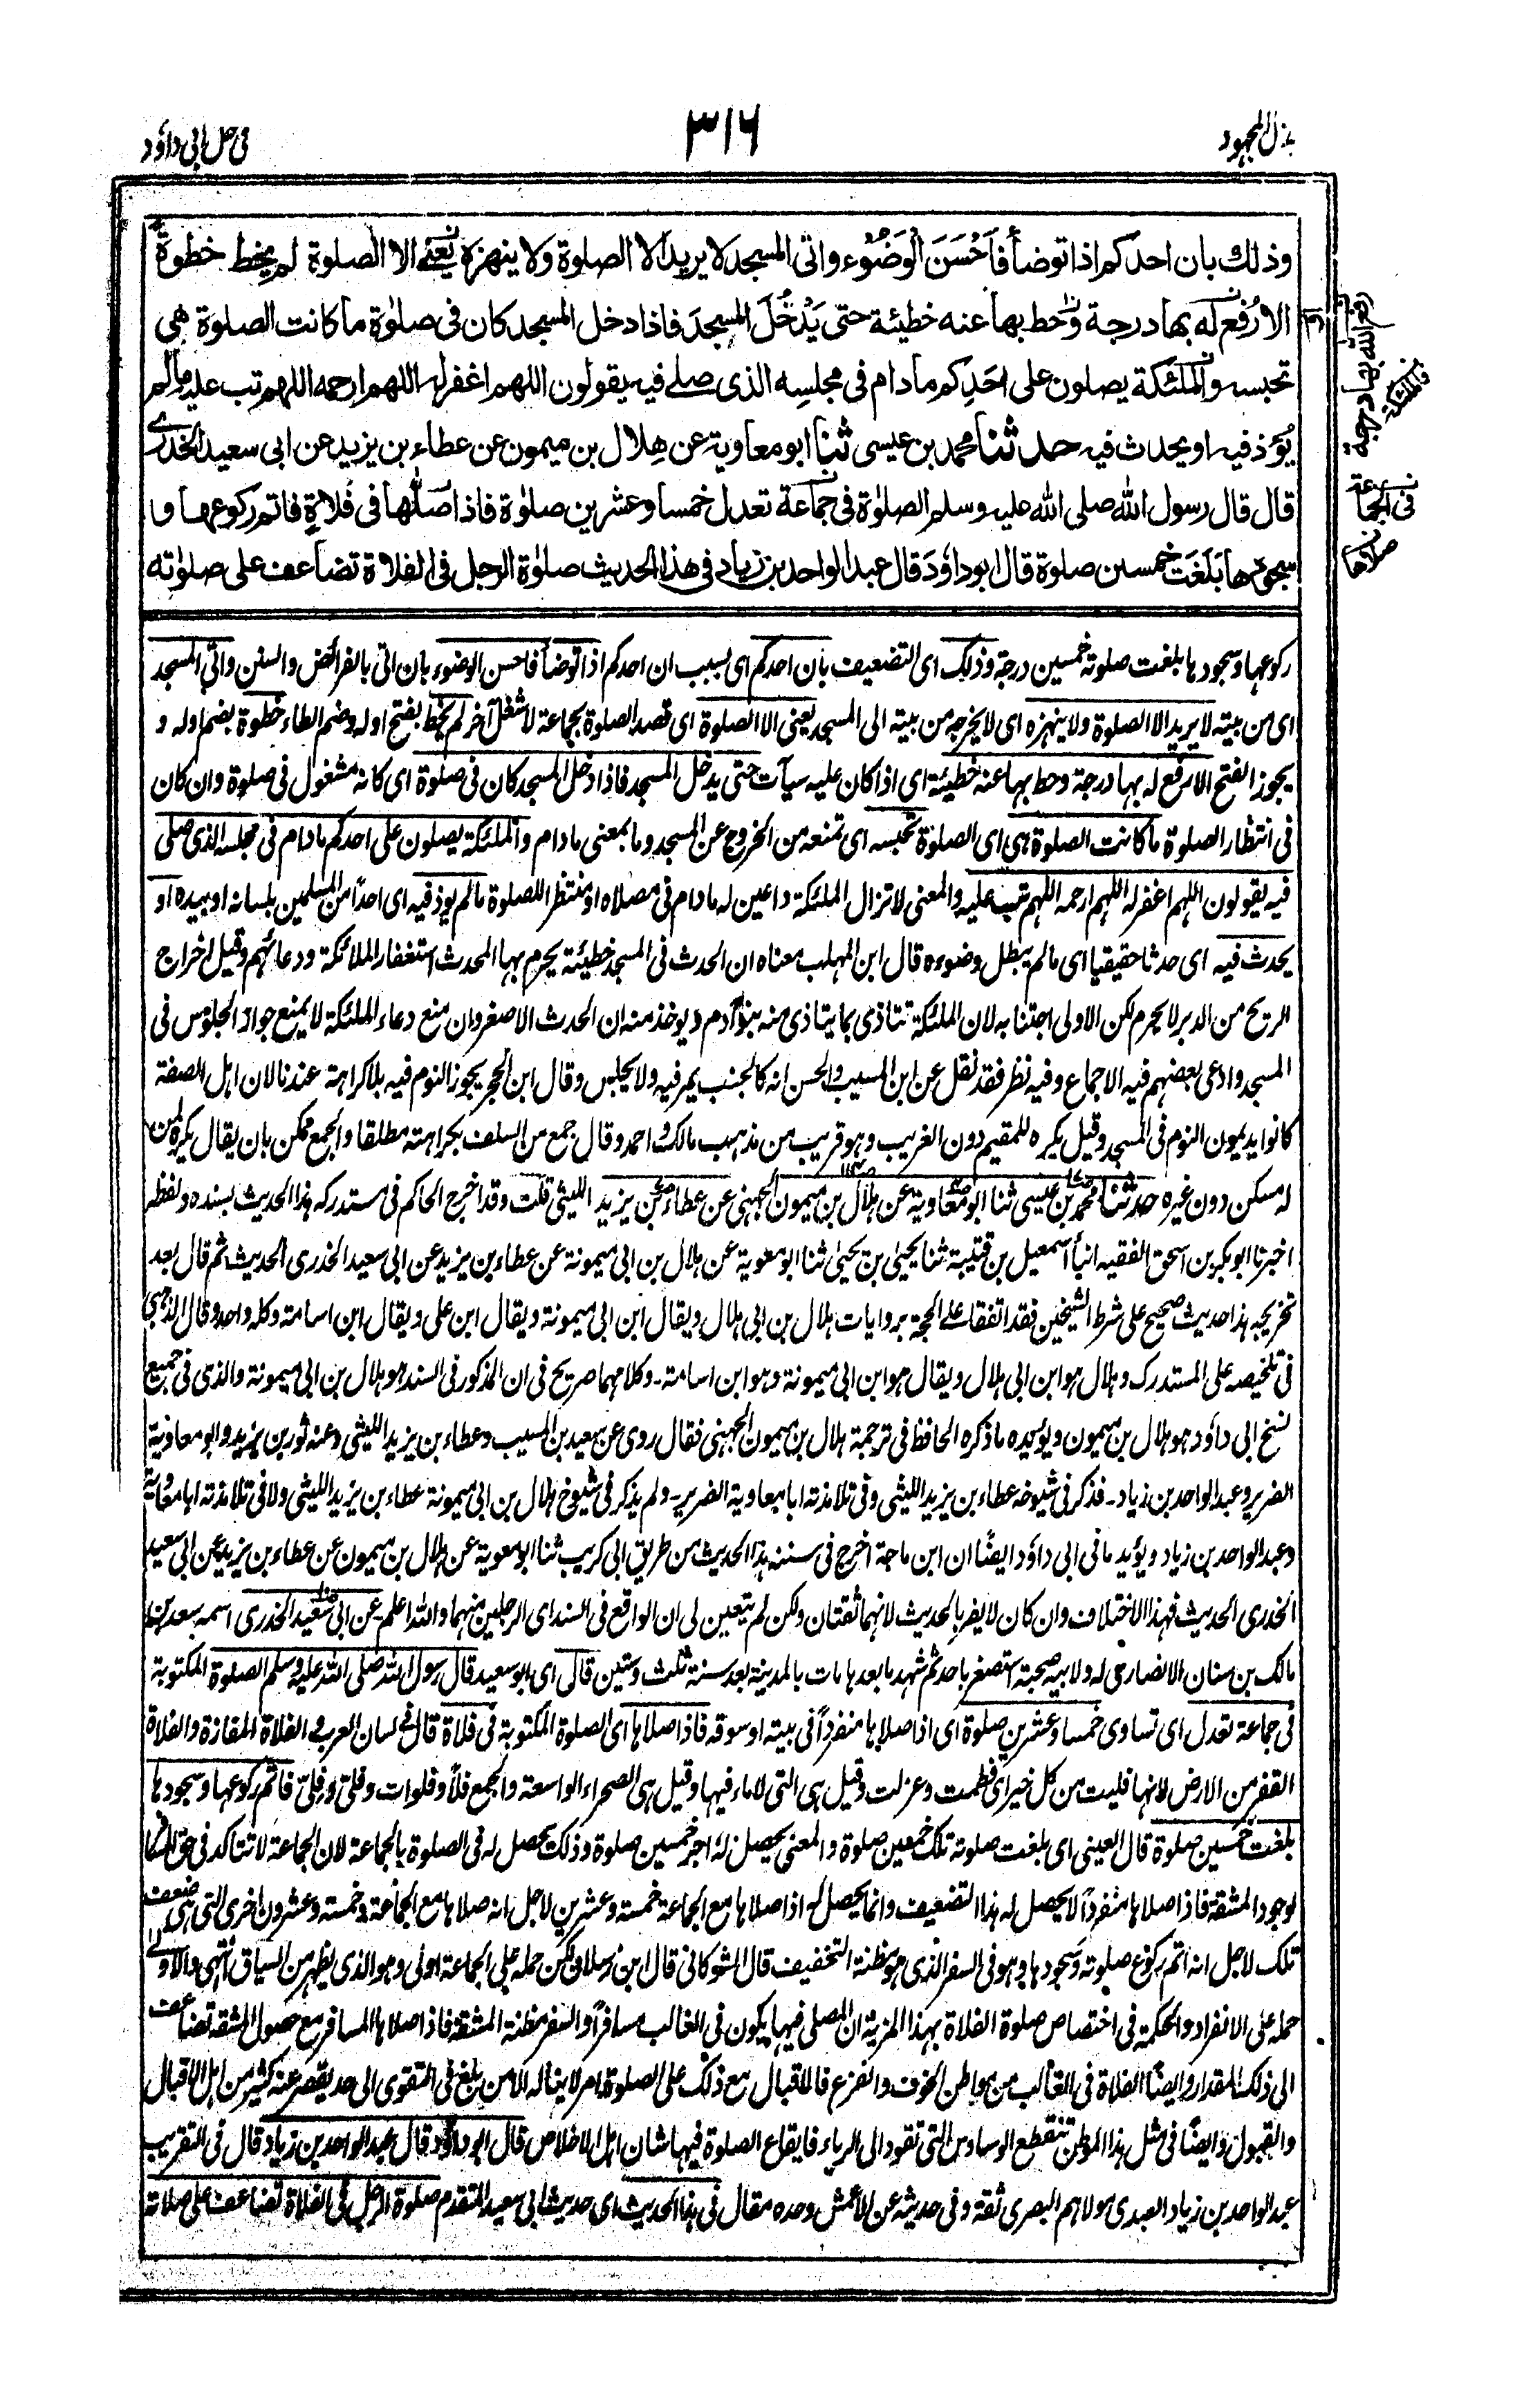 بذل المجهود
٣١٦
فی حل ابی داؤد
وذلك بان احدكم اذا توضأ فَاَحْسَنَ الْوُضُوْءَ واتى المسجد لا يريد الا الصلوة ولا ينهزه يعنى الا الصلوة لم يخط خطوة
الا رُفع له بها درجة وحط بها عنه خطيئة حتى يَدْخُلَ المسجدَ فاذا دخل المسجد كان فى صلوٰة ما كانت الصلوة هى
تحبسه والملئكة يصلون على احَدِكم ما دام فى مجلسِه الذى صلے فيه يقولون اللهم اغفر له اللهم ارحمه اللهم تب عليه ما لم
يُؤذ فيه او يحدث فيه حدثنا محمد بن عيسى ثنا ابو معاوية عن هِلال بن ميمون عن عطاء بن يزيد عن ابى سعيد الخدرى
قال قال رسول الله صلى الله عليه وسلم الصلوٰة فى جماعة تعدل خمسا وعشرين صلوٰة فاذا صلّٰها فى فَلاةٍ فاتم ركوعها و
سجودها بَلَغَت خمسين صلوة قال ابو داوٗدَ قال عبد الواحد بن زياد فى هذا الحديث صلوٰة الرجل فى الفلاة تضاعف على صلوٰته
رفع الله بها درجة
فالملئكة
فى الجماعة
صلاها
ركوعها وسجودها بلغت صلوته خمسين درجة وذلك اى التضعيف بان احدكم اى بسبب ان احدكم اذا توضأ فاحسن الوضوء بان اتى بالفرائض والسنن واتى المسجد
اى من بيته لا يريد الا الصلوة ولا ينهزه اى لا يخرجه من بيته الى المسجد يعنى الا الصلوة اى قصد الصلوة بجماعة لا شغل آخر لم يخط بفتح اوله وضم الطاء خطوة بضم اوله و
يجوز الفتح الا رفع له بها درجة وحط بها عنه خطيئة اى اذا كان عليه سيآت حتى يدخل المسجد فاذا دخل المسجد كان فى صلوة اى كانه مشغول فى صلوة وان كان
فى انتظار الصلوة ما كانت الصلوة هى اى الصلوة تحبسه اى تمنعه من الخروج عن المسجد وما بمعنى ما دام والملئكة يصلون على احدكم ما دام فى مجلسه الذى صلى
فيه يقولون اللهم اغفر له اللهم ارحمه اللهم تب عليه والمعنى لا تزال الملئكة داعين له ما دام فى مصلاه او منتظرا للصلوة ما لم يوذ فيه اى احدًا من المسلمين بلسانه او بيده او
يحدث فيه اى حدثا حقيقيا اى ما لم يبطل وضوءه قال ابن المهلب معناه ان الحدث فى المسجد خطيئة يحرم بها المحدث استغفار الملائكة ودعائهم وقيل اخراج
الريح من الدبر لا يحرم لكن الاولى اجتنابه لان الملئكة تتاذى بما يتاذى منه بنو آدم ويوخذ منه ان الحدث الاصغر وان منع دعاء الملئكة لا يمنع جواز الجلوس فى
المسجد وادعى بعضهم فيه الاجماع وفيه نظر فقد نقل عن ابن المسيب والحسن انه كالجنب يمر فيه ولا يجلس وقال ابن الحجر يجوز النوم فيه بلا كراهة عندنا لان اهل الصفة
كانوا يديمون النوم فى المسجد وقيل يكره للمقيم دون الغريب وهو قريب من مذهب مالك واحمد وقال جمع من السلف بكراهته مطلقا والجمع ممكن بان يقال يكره لمن
له مسكن دون غيره حدثنا محمد بن عيسى ثنا ابو معاوية عن هلال بن ميمون الجهنى عن عطاء بن يزيد الليثى قلت وقد اخرج الحاكم فى مستدركه هذا الحديث بسنده ولفظه
اخبرنا ابو بكر بن اسحق الفقيه انبأ اسمعيل بن قتيبة ثنا يحيىٰ بن يحيىٰ ثنا ابو معوية عن هلال بن ابى ميمونة عن عطاء بن يزيد عن ابى سعيد الخدرى الحديث ثم قال بعد
تخريجه هذا حديث صحيح على شرط الشيخين فقد اتفقا على الحجة بروايات هلال بن ابى هلال ويقال ابن ابى ميمونة ويقال ابن على ويقال ابن اسامة وكله واحد وقال الذهبى
فى تلخيصه على المستدرك وهلال هو ابن ابى هلال ويقال هو ابن ابى ميمونة وهو ابن اسامة۔ وكلامهما صريح فى ان المذكور فى السند هو هلال بن ابى ميمونة والذى فى جميع
نسخ ابى داؤد هو هلال بن ميمون ويؤيده ما ذكره الحافظ فى ترجمة هلال بن ميمون الجهنى فقال روى عن سعيد بن المسيب وعطاء بن يزيد الليثى وعنه ثور بن يزيد وابو معاوية
الضرير وعبد الواحد بن زياد۔ فذكر فى شيوخه عطاء بن يزيد الليثى وفى تلامذته ابا معاوية الضرير۔ ولم يذكر فى شيوخ هلال بن ابى ميمونة عطاء بن يزيد الليثى ولا فى تلامذته ابا معاوية
وعبد الواحد بن زياد ويؤيد ما فى ابى داؤد ايضًا ان ابن ماجة اخرج فى سننه هذا الحديث من طريق ابى كريب ثنا ابو معوية عن هلال بن ميمون عن عطاء بن يزيد عن ابى سعيد
الخدرى الحديث فهذا الاختلاف وان كان لا يضر بالحديث لانهما ثقتان ولكن لم يتعين لى ان الواقع فى السند اى الرجلين منهما والله اعلم۔ عن ابى سعيد الخدرى اسمه سعد بن
مالك بن سنان الانصارى له ولابيه صحبة استصغر باحد ثم شهد ما بعدها مات بالمدينة بعد سنة ثلث وستين قال اى ابو سعيد قال رسول الله صلى الله عليه وسلم الصلوة المكتوبة
فى جماعة تعدل اى تساوى خمسا وعشرين صلوة اى اذا صلاها منفرداً فى بيته او سوقه فاذا صلاها اى الصلوة المكتوبة فى فلاة قال فى لسان العرب والفلاة المفازة والفلاة
القفر من الارض لانها فليت من كل خير اى فطمت وعزلت وقيل هى التى لا ماء فيها وقيل هى الصحراء الواسعة والجمع فلاً وفلوات وفلىّ وفِلىّ فاتم ركوعها وسجودها
بلغت خمسين صلوة قال العينى اى بلغت صلوته تلك خمسين صلوة والمعنى يحصل له اجر خمسين صلوة وذلك يحصل له فى الصلوة بالجماعة لان الجماعة لا تتاكد فى حق المسافر
لوجود المشقة فاذا صلاها منفرداً لا يحصل له هذا التضعيف وانما يحصل له اذا صلاها مع الجماعة خمسة وعشرين لاجل انه صلاها مع الجماعة وخمسة وعشرون اخرى التى هى ضعف
تلك لاجل انه اتم ركوع صلوته وسجودها وهو فى السفر الذى هو مظنة التخفيف قال الشوكانى قال ابن رسلان لكن حمله على الجماعة اولى وهو الذى يظهر من السياق انتهى والاولى
حمله على الانفراد والحكمة فى اختصاص صلوة الفلاة بهذا المزية ان المصلى فيها يكون فى الغالب مسافراً والسفر مظنة المشقة فاذا صلاها المسافر مع حصول المشقة تضاعف
الى ذلك المقدار وايضًا الفلاة فى الغالب من مواطن الخوف والفزع فالاقبال مع ذلك على الصلوة امر لا يناله الا من بلغ فى التقوى الى حد يقصر عنه كثير من اهل الاقبال
والقبول وايضًا فى مثل هذا الموطن تنقطع الوساوس التى تقود الى الرياء فايقاع الصلوة فيها شان اهل الاخلاص قال ابو داؤد قال عبد الواحد بن زياد قال فى التقريب
عبد الواحد بن زياد العبدى مولاهم البصرى ثقة وفى حديثه عن الاعمش وحده مقال فى هذا الحديث اى حديث ابى سعيد المتقدم صلوة الرجل فى الفلاة تضاعف على صلاته